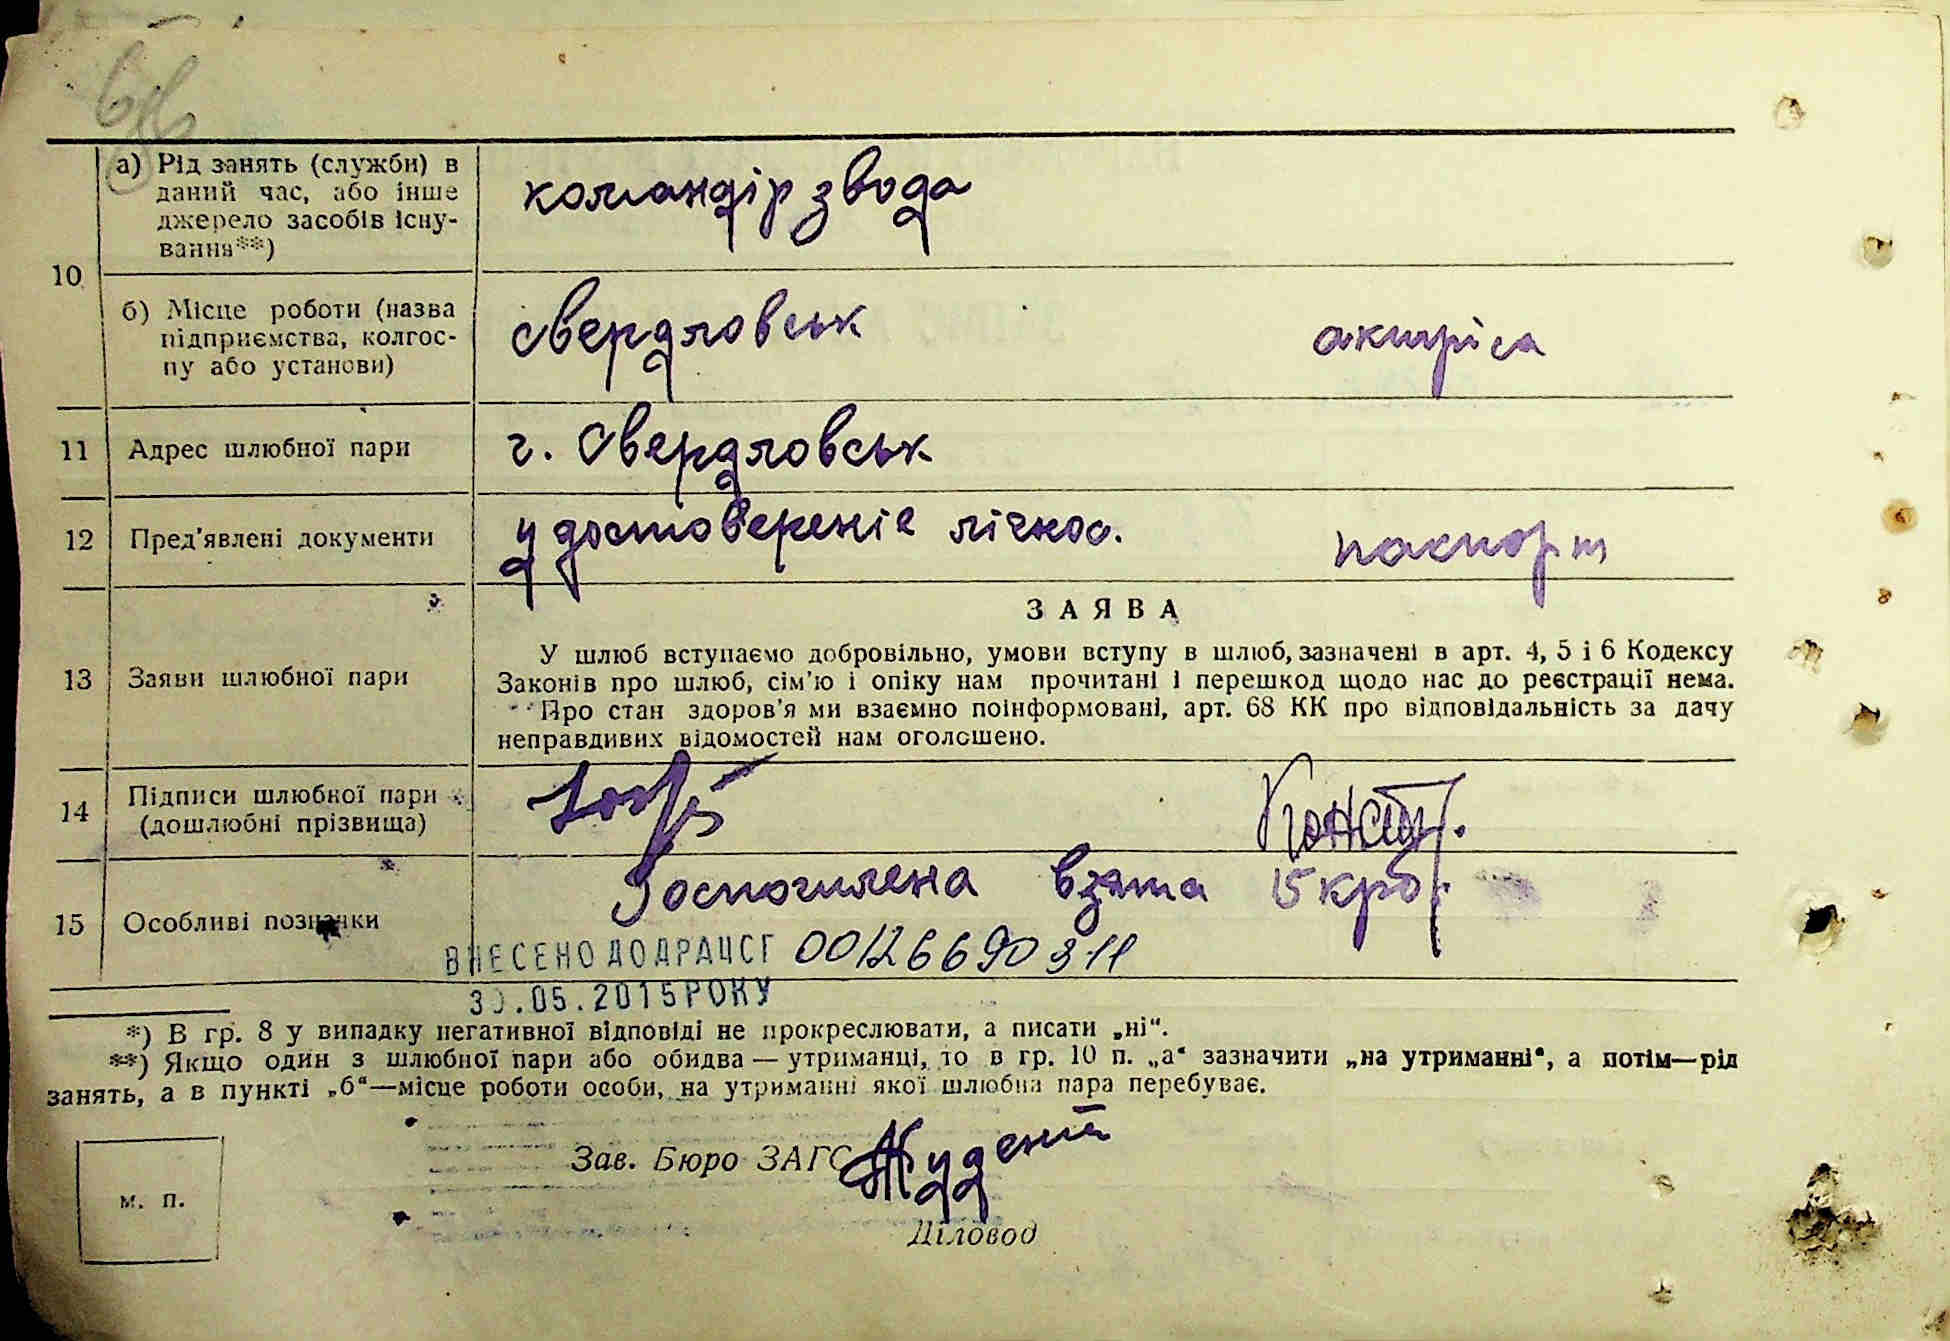 а) Рід занять (служби) в
даний час, або інше
джерело засобів існу-
вання**)
командір звода
10
б) Місце роботи (назва
підприємства, колгос-
пу або установи)
свердловськ актріса
11 Адрес шлюбної пари г. Свердловськ
12 Пред'явлені документи удостовереніе лічнос. паспорт
13 Заяви шлюбної пари
ЗАЯВА
У шлюб вступаємо добровільно, умови вступу в шлюб, зазначені в арт. 4, 5 і 6 Кодексу
Законів про шлюб, сім'ю і опіку нам прочитані і перешкод щодо нас до реєстрації нема.
Про стан здоров'я ми взаємно поінформовані, арт. 68 КК про відповідальність за дачу
неправдивих відомостей нам оголошено.
14 Підписи шлюбної пари
(дошлюбні прізвища)
15 Особливі позначки
Госпошлена взята 15 крб.
ВНЕСЕНО ДО ДРАЦСГ 00126690311
30.05.2015 РОКУ
*) В гр. 8 у випадку негативної відповіді не прокреслювати, а писати „ні“.
**) Якщо один з шлюбної пари або обидва — утриманці, то в гр. 10 п. „а“ зазначити „на утриманні“, а потім—рід
занять, а в пункті „б“—місце роботи особи, на утриманні якої шлюбна пара перебуває.
Зав. Бюро ЗАГС
м. п.
Діловод